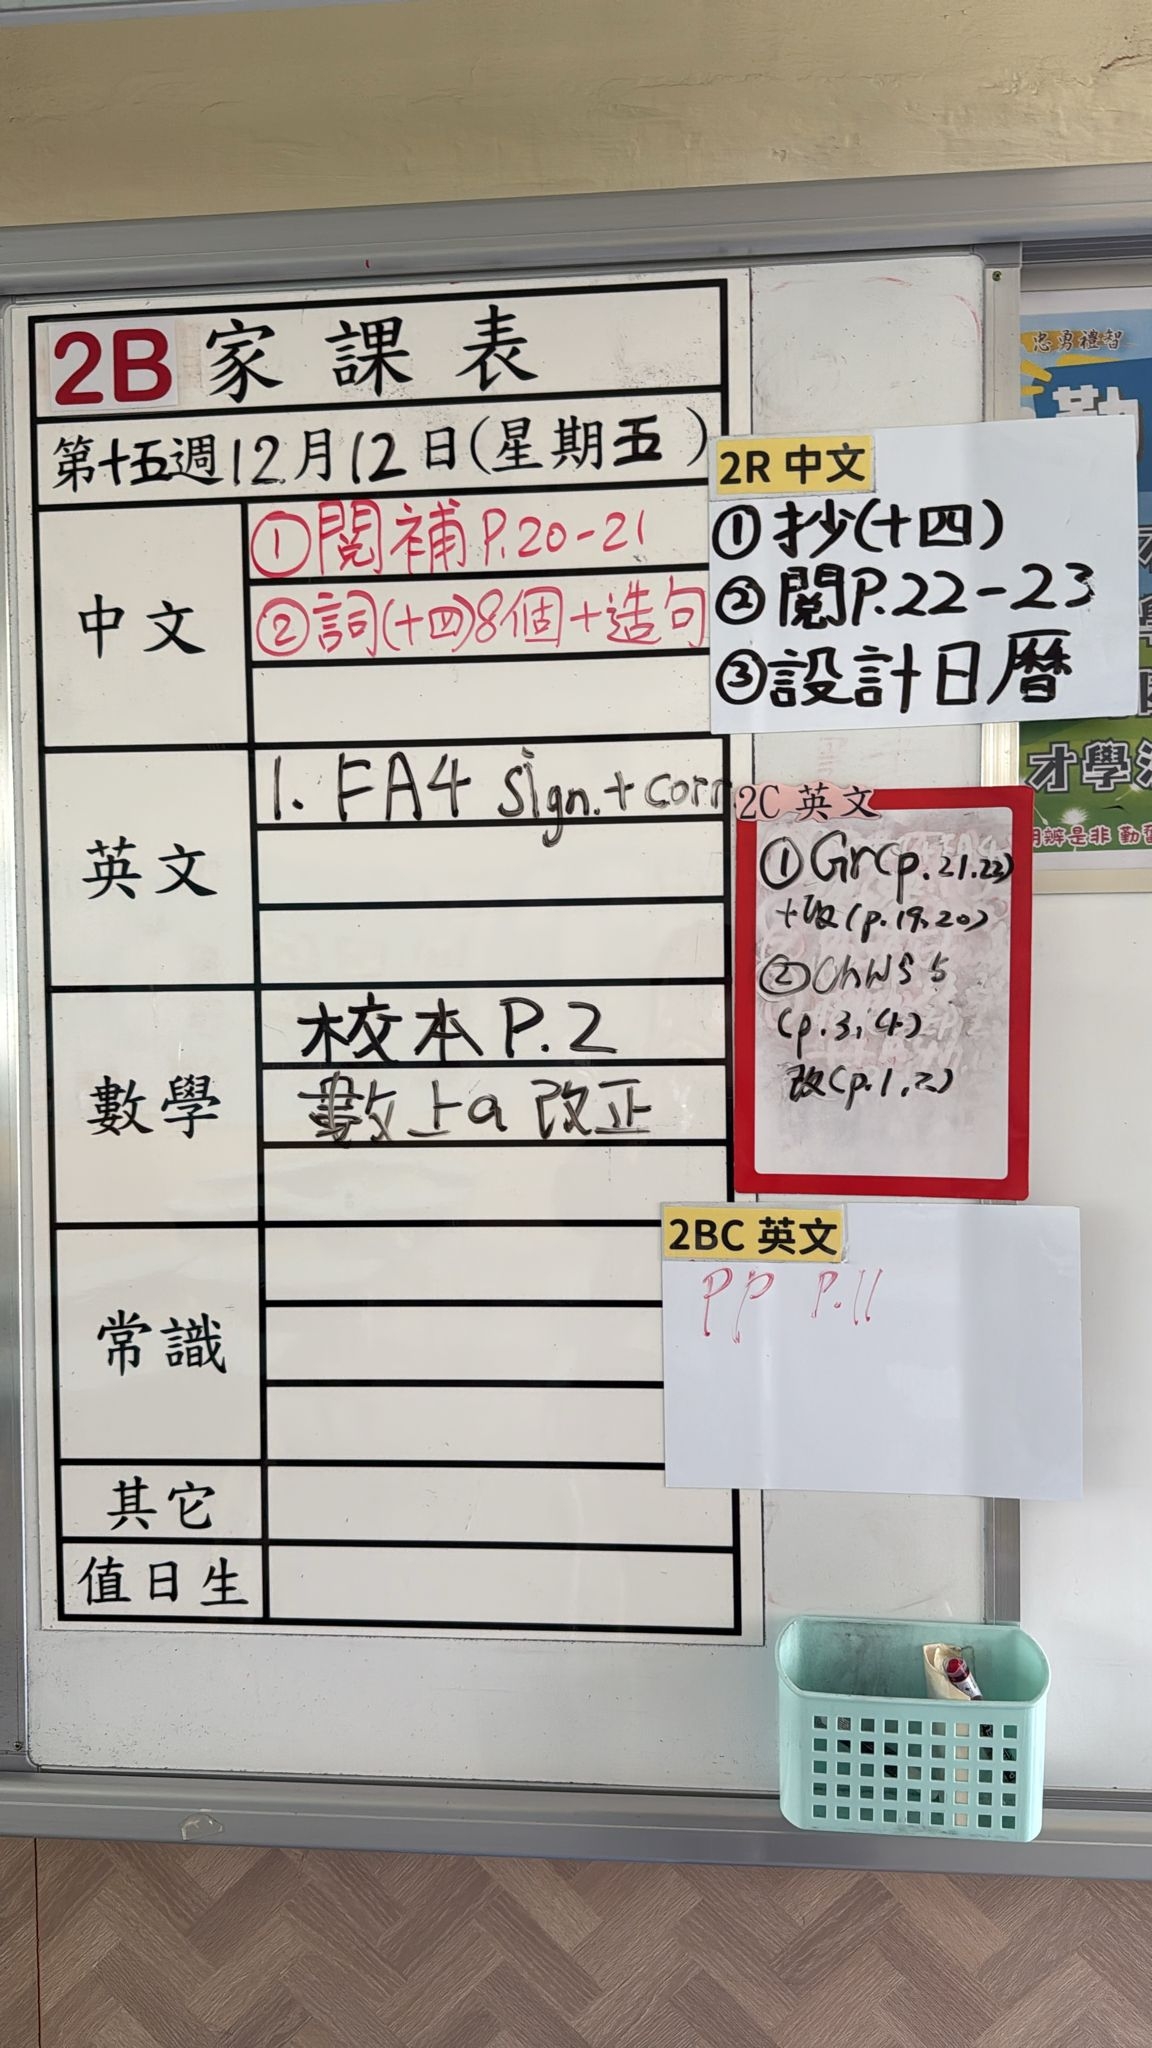 2B 家課表
第十五週12月12日(星期五)
中文
①閱補 P.20-21
②詞(十四)8個+造句
英文
1. FA4 sign.+corr
數學
校本 P.2
數上a 改正
常識
其它
值日生
2R 中文
①抄(十四)
②閱P.22-23
③設計日曆
2C 英文
①Gr(p.21.22)
+改(p.19,20)
②ChWS 5
(p.3,4)
改(p.1,2)
2BC 英文
PP P.11
忠勇禮智
勤
才學
明辨是非 勤